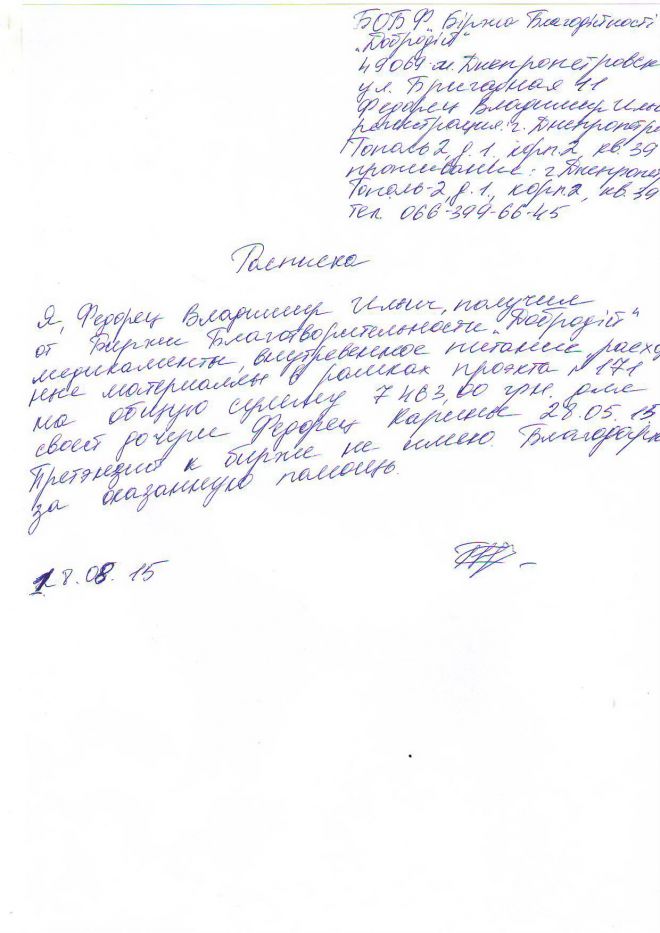 БОБФ „Біржа Благодійності
„Добродій“
49069 м. Днепропетровск
ул. Бригадная 11
Федорец Владимир Ильи
регистрация: г. Днепропетро
Тополь 2, д. 1, корп. 2 кв. 39
проживание: г. Днепропет
Тополь-2, д. 1, корп. 2, кв. 39
тел. 066-399-66-45
Расписка
Я, Федорец Владимир Ильич, получил
от Биржи Благотворительности „Добродій“
медикаменты, внутревенное питание расхо
ные материалы в рамках проэкта №171
на общую сумму 7483,00 грн. для
своей дочери Федорец Карины 28.05.15
Претэнзий к бирже не имею. Благодарн
за оказанную помощь.
18.08.15